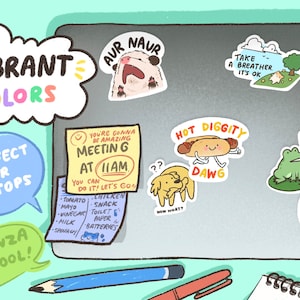 BRANT
OLORS
FECT
R
TOPS
NZA
OOL!
AUR NAUR
TAKE
A BREATHER
IT'S OK
YOU'RE GONNA
BE AMAZING
MEETING
AT 11AM
YOU CAN
DO IT! LET'S GO
TOMATO
MAYO
VINEGAR
MILK
CHICKEN
SNACK
TOILET
PAPER
BATTERIES
HOT DIGGITY
DAWG
??